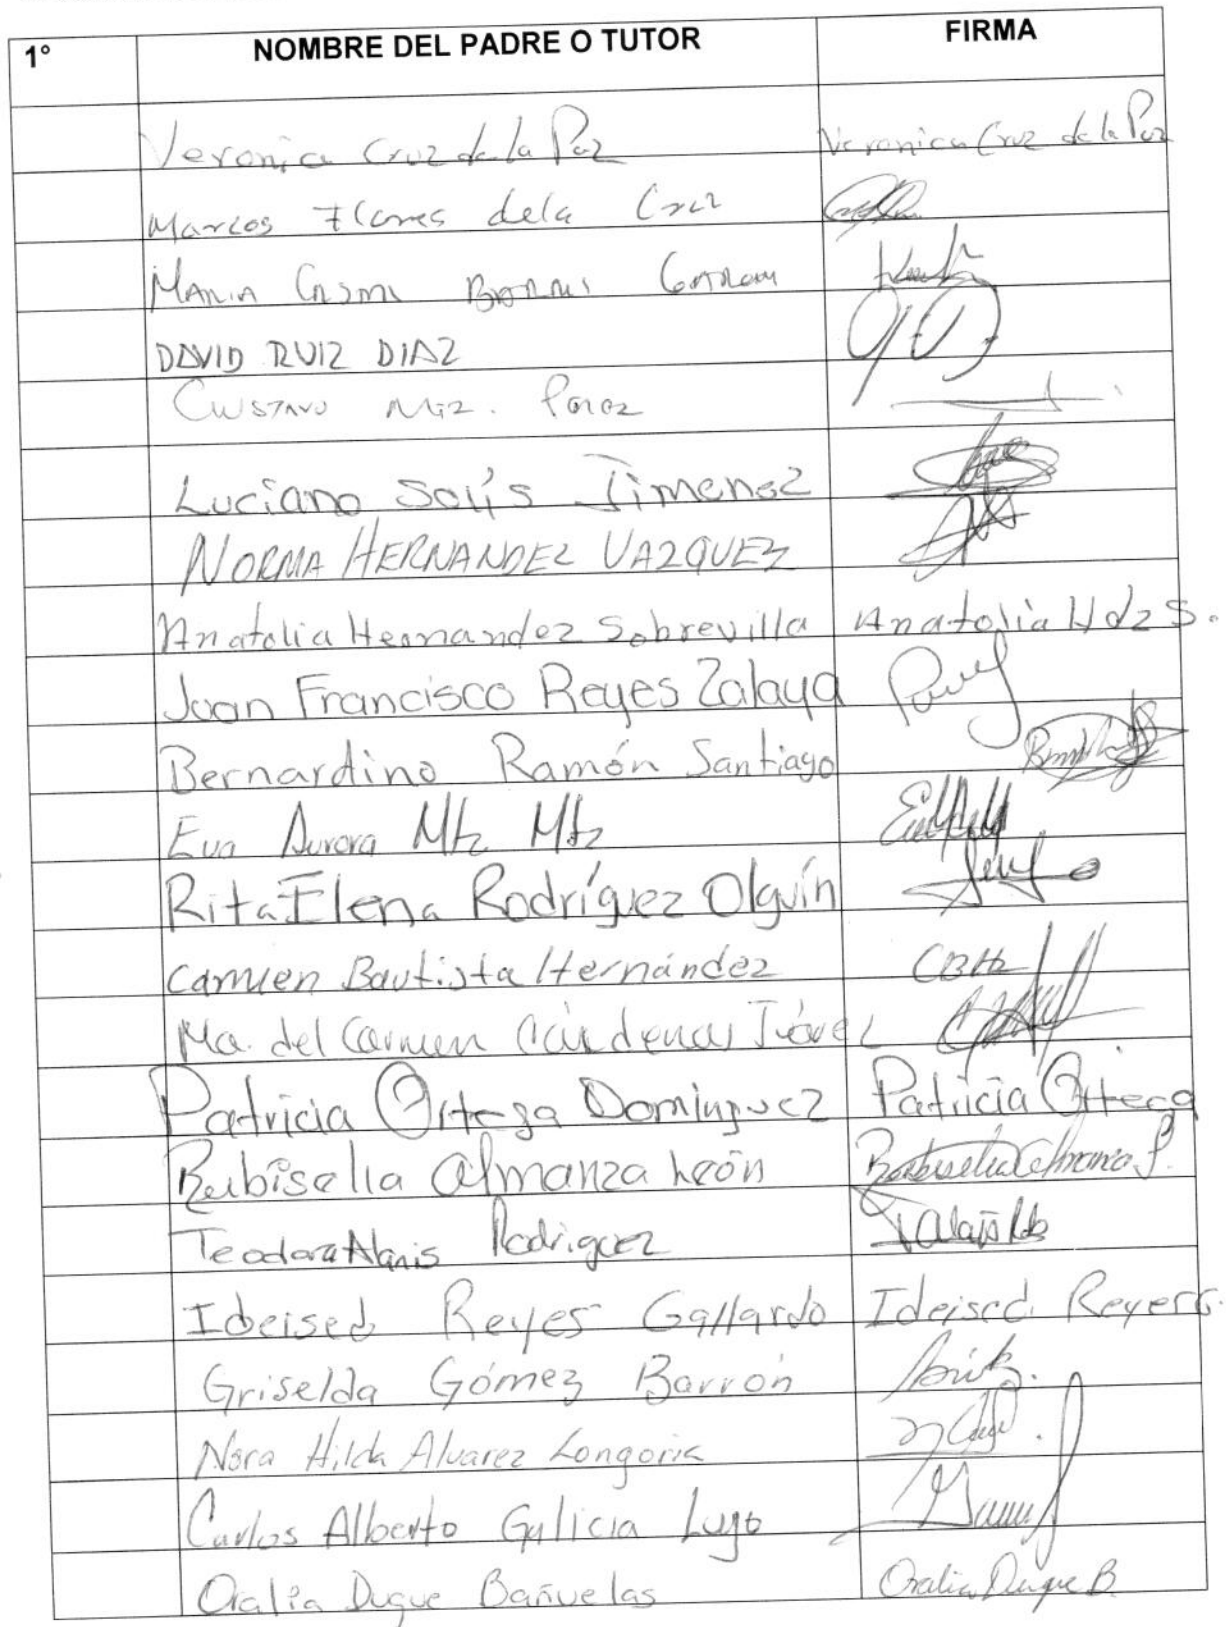 1° NOMBRE DEL PADRE O TUTOR FIRMA
Veronica Cruz de la Paz Veronica Cruz de la Paz
Marcos Flores dela Cruz
MARIA
DAVID RUIZ DIAZ
GUSTAVO Mtz. Perez
Luciano Solís Jimenez
NORMA HERNANDEZ VAZQUEZ
Anatolia Hernandez Sobrevilla Anatolia Hdz S.
Juan Francisco Reyes Zalaya
Bernardino Ramón Santiago
Eva Aurora Mtz Mtz
Rita Elena Rodríguez Olguín
Carmen Bautista Hernández CBHz
Ma. del Carmen Cárdenas
Patricia Ortega Dominguez Patricia Ortega
Rubiselia Almanza León
Teodora Alanis Rodriguez
Ideised Reyes Gallardo Ideised Reyes G.
Griselda Gómez Barrón
Nora Hilda Alvarez Longoria
Carlos Alberto Galicia Lugo
Oralia Duque Bañuelas Oralia Duque B.